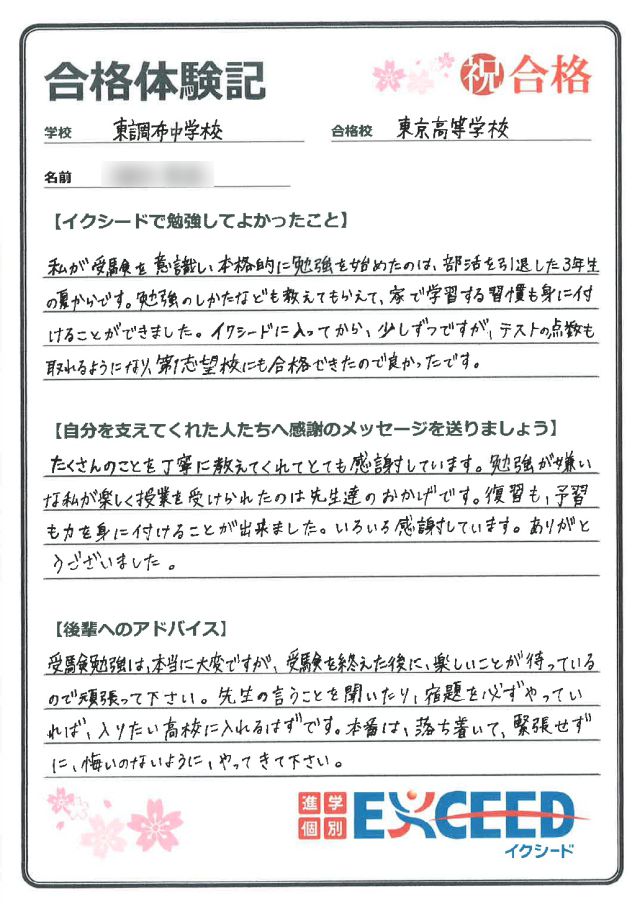 合格体験記
祝 合格
学校 東調布中学校
合格校 東京高等学校
名前
【イクシードで勉強してよかったこと】
私が受験を意識し、本格的に勉強を始めたのは、部活を引退した3年生
の夏からです。勉強のしかたなども教えてもらえて、家で学習する習慣も身に付
けることができました。イクシードに入ってから、少しずつですが、テストの点数も
取れるようになり、第1志望校にも合格できたので良かったです。
【自分を支えてくれた人たちへ感謝のメッセージを送りましょう】
たくさんのことを丁寧に教えてくれてとても感謝しています。勉強が嫌い
な私が楽しく授業を受けられたのは先生達のおかげです。復習も、予習
も力を身に付けることが出来ました。いろいろ感謝しています。ありがと
うございました。
【後輩へのアドバイス】
受験勉強は、本当に大変ですが、受験を終えた後に、楽しいことが待っている
ので頑張って下さい。先生の言うことを聞いたり、宿題を必ずやってい
れば、入りたい高校に入れるはずです。本番は、落ち着いて、緊張せず
に、悔いのないように、やってきて下さい。
進学
個別
EXCEED
イクシード